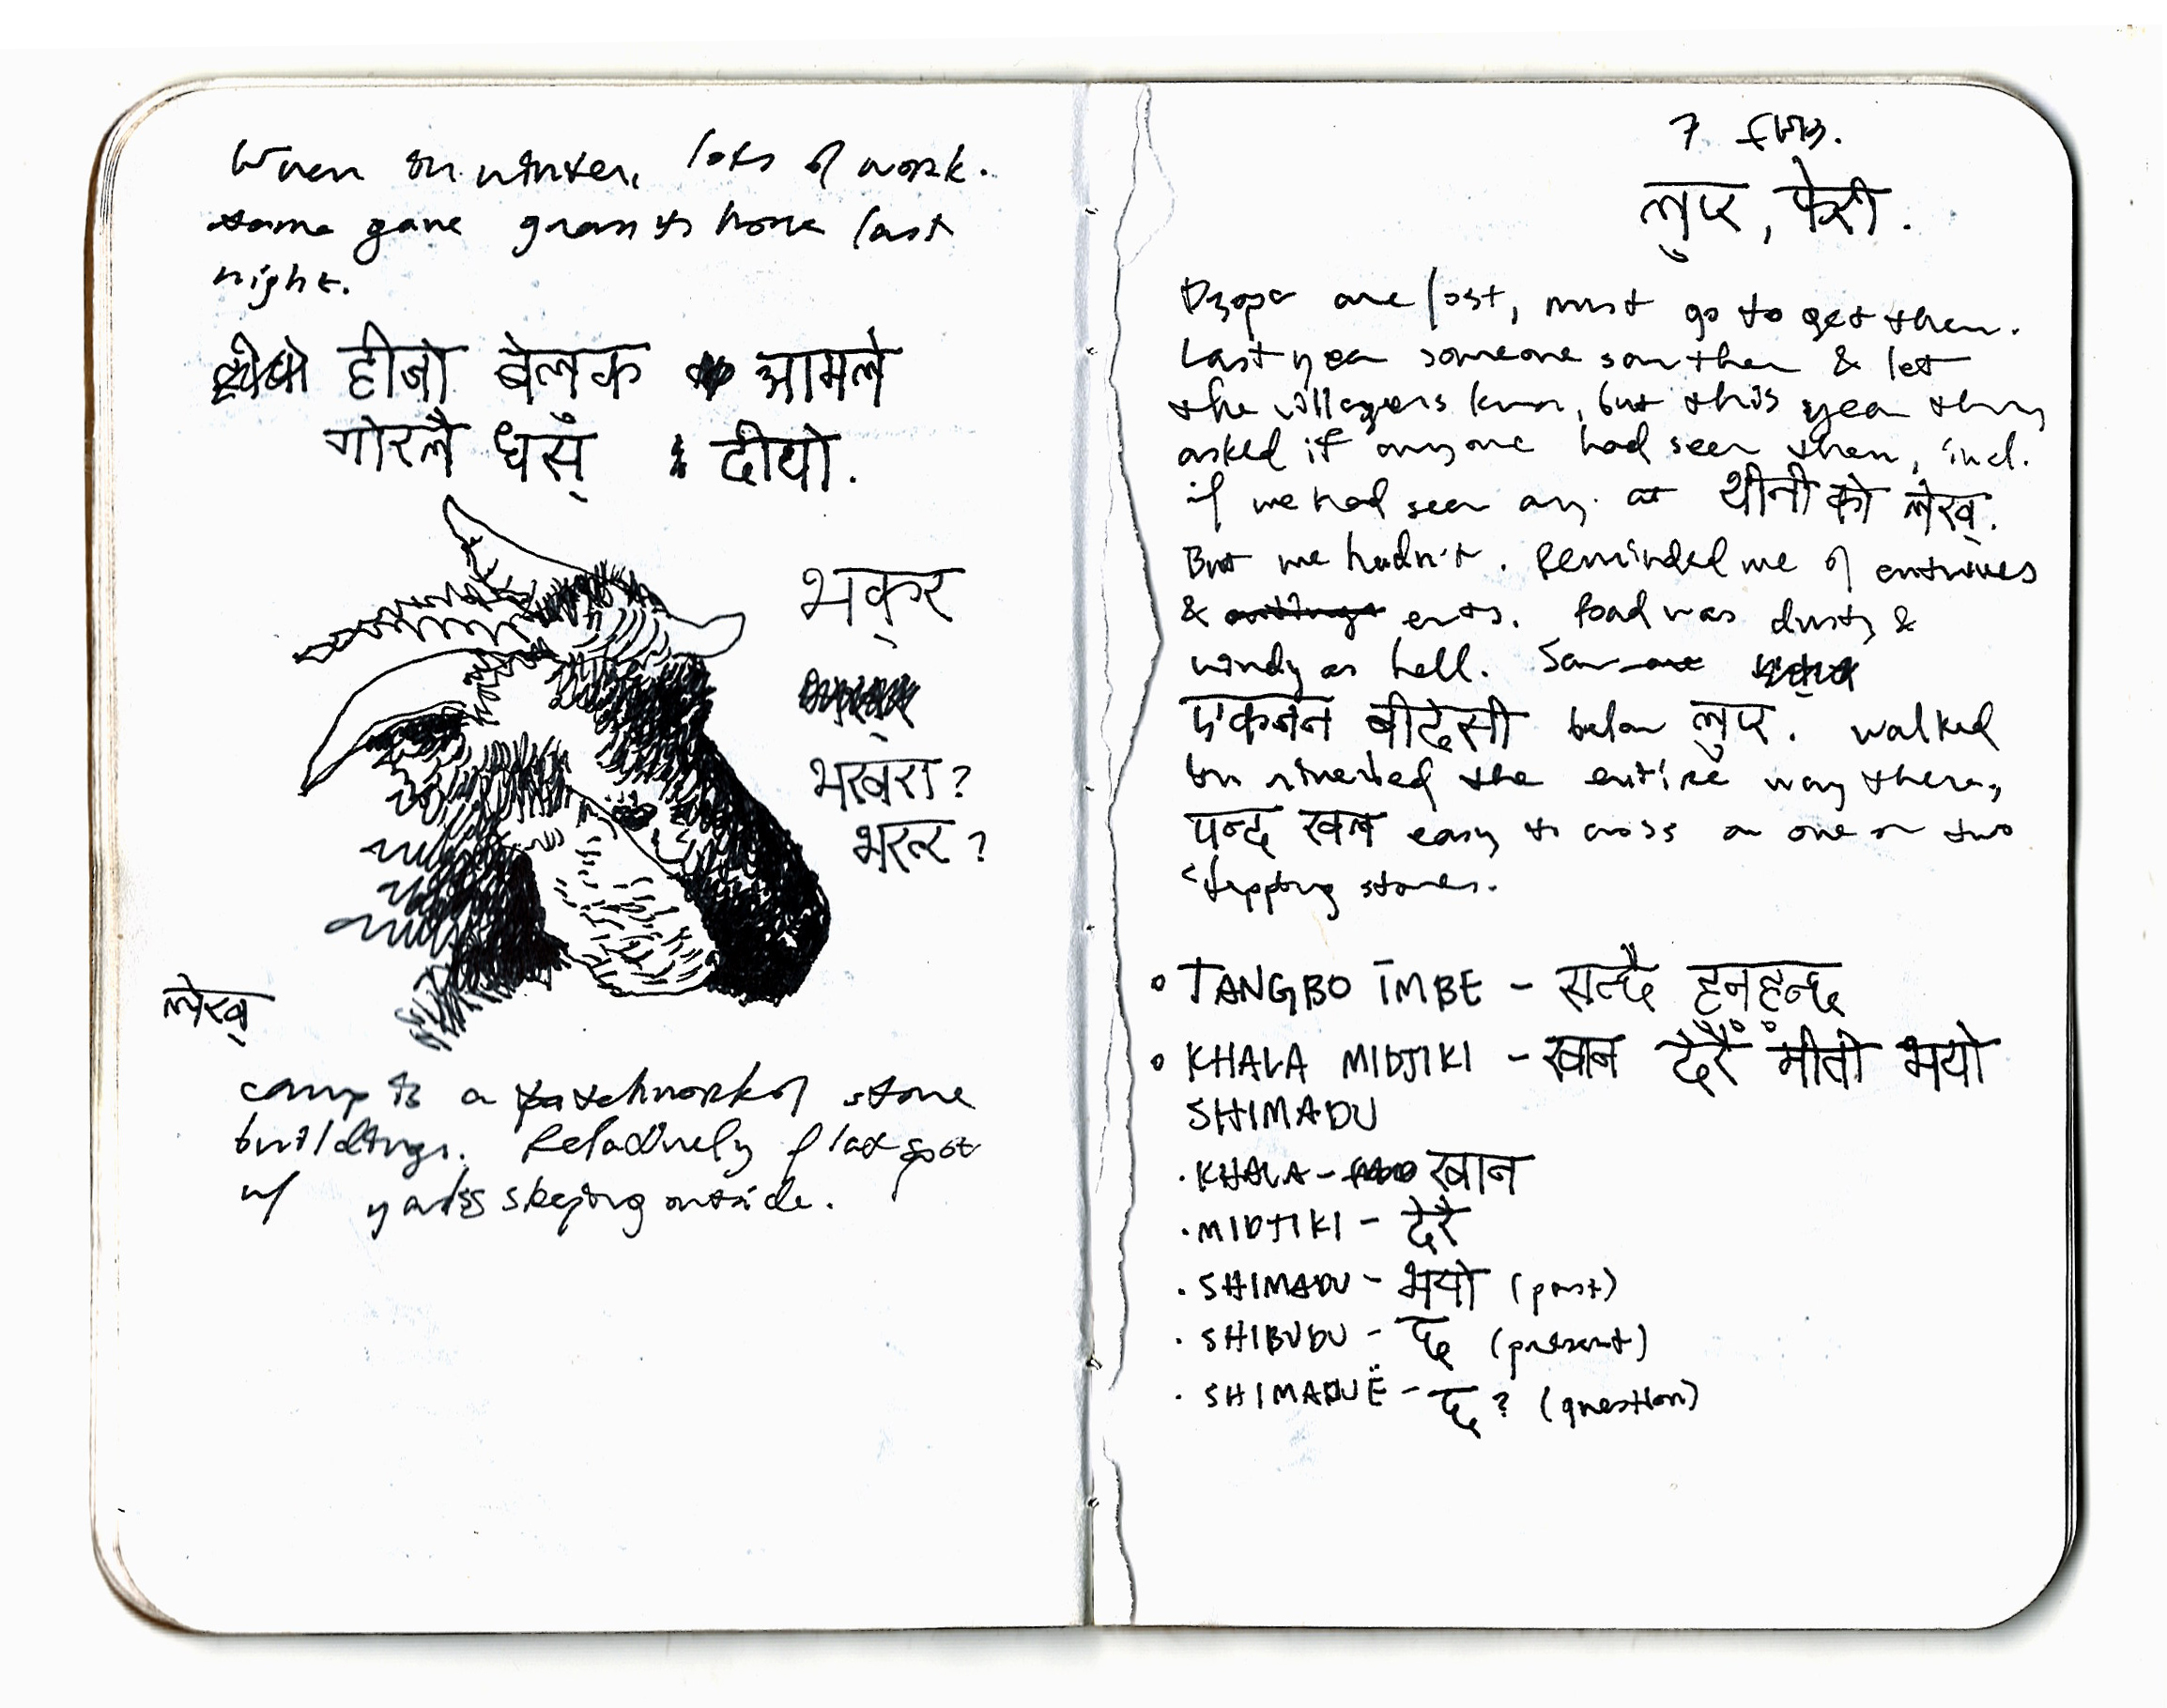 Warm in winter, lots of work.
Same gave grass to horse last
night.
हीजो बेलक आमले
गोरलै धसँ् दीयो.
भक्र
भखरा?
भरन्र?
लेख्
camp is a patchwork of stone
buildings. Relatively flat spot
w/ yaks sleeping outside.
7 feb.
लुपर, फेरी.
Dzopa are lost, must go to get them.
Last year someone saw them & let
the villagers know, but this year they
asked if anyone had seen them, incl.
if we had seen any at थीनी को लेख्.
But we hadn't. Reminded me of entwives
& ents. Road was dusty &
windy as hell. Saw
एकजन बीदेसी below लुपर. walked
on riverbed the entire way there,
पन्द खल easy to cross on one or two
stepping stones.
• TANGBO ĪMBE - सन्चै हुनुहुन्छ
• KHALA MIDJIKI - खान देरै मीठो भयो
SHIMADU
• KHALA - खान
• MIDJIKI - देरै
• SHIMADU - भयो (past)
• SHIBUDU - छ (present)
• SHIMADUË - छ? (question)